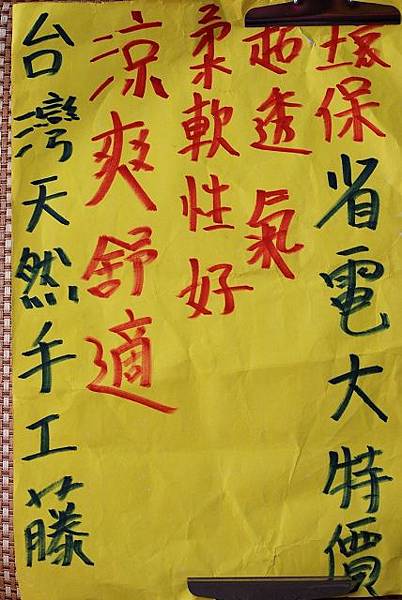 環保省電大特價
超透氣
柔軟性好
涼爽舒適
台灣天然手工藤